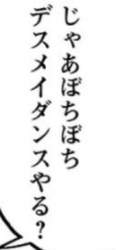 じゃあぼちぼち
デスメイダンスやる？